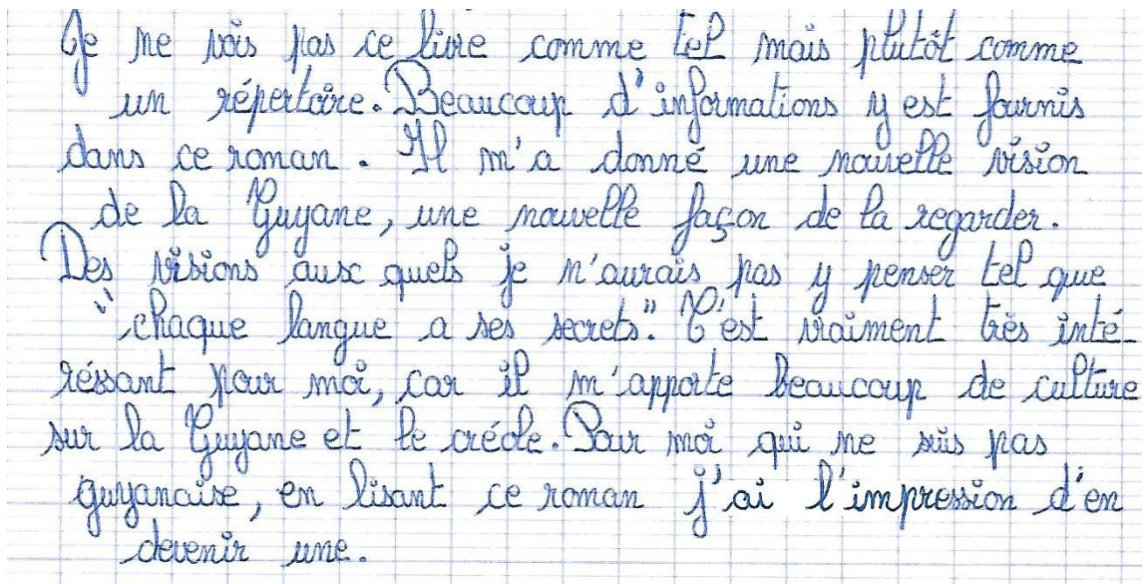 Je ne vois pas ce livre comme tel mais plutôt comme
un répertoire. Beaucoup d'informations y est fournis
dans ce roman. Il m'a donné une nouvelle vision
de la Guyane, une nouvelle façon de la regarder.
Des visions aux quels je n'aurais pas y penser tel que
"chaque langue a ses secrets". C'est vraiment très inté-
réssant pour moi, car il m'apporte beaucoup de culture
sur la Guyane et le créole. Pour moi qui ne suis pas
guyanaise, en lisant ce roman j'ai l'impression d'en
devenir une.